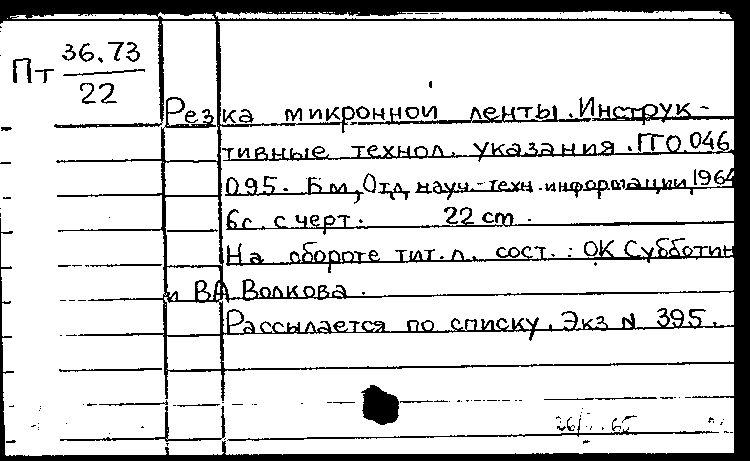 Пт 36.73
22
Резка микронной ленты. Инструк-
тивные технол. указания. ГГО.046.
095. Бм, Отд. науч.-техн. информации, 1964
6с. с черт. 22 cm.
На обороте тит. л. сост.: ОК Субботин
и ВА Волкова.
Рассылается по списку. Экз N 395.